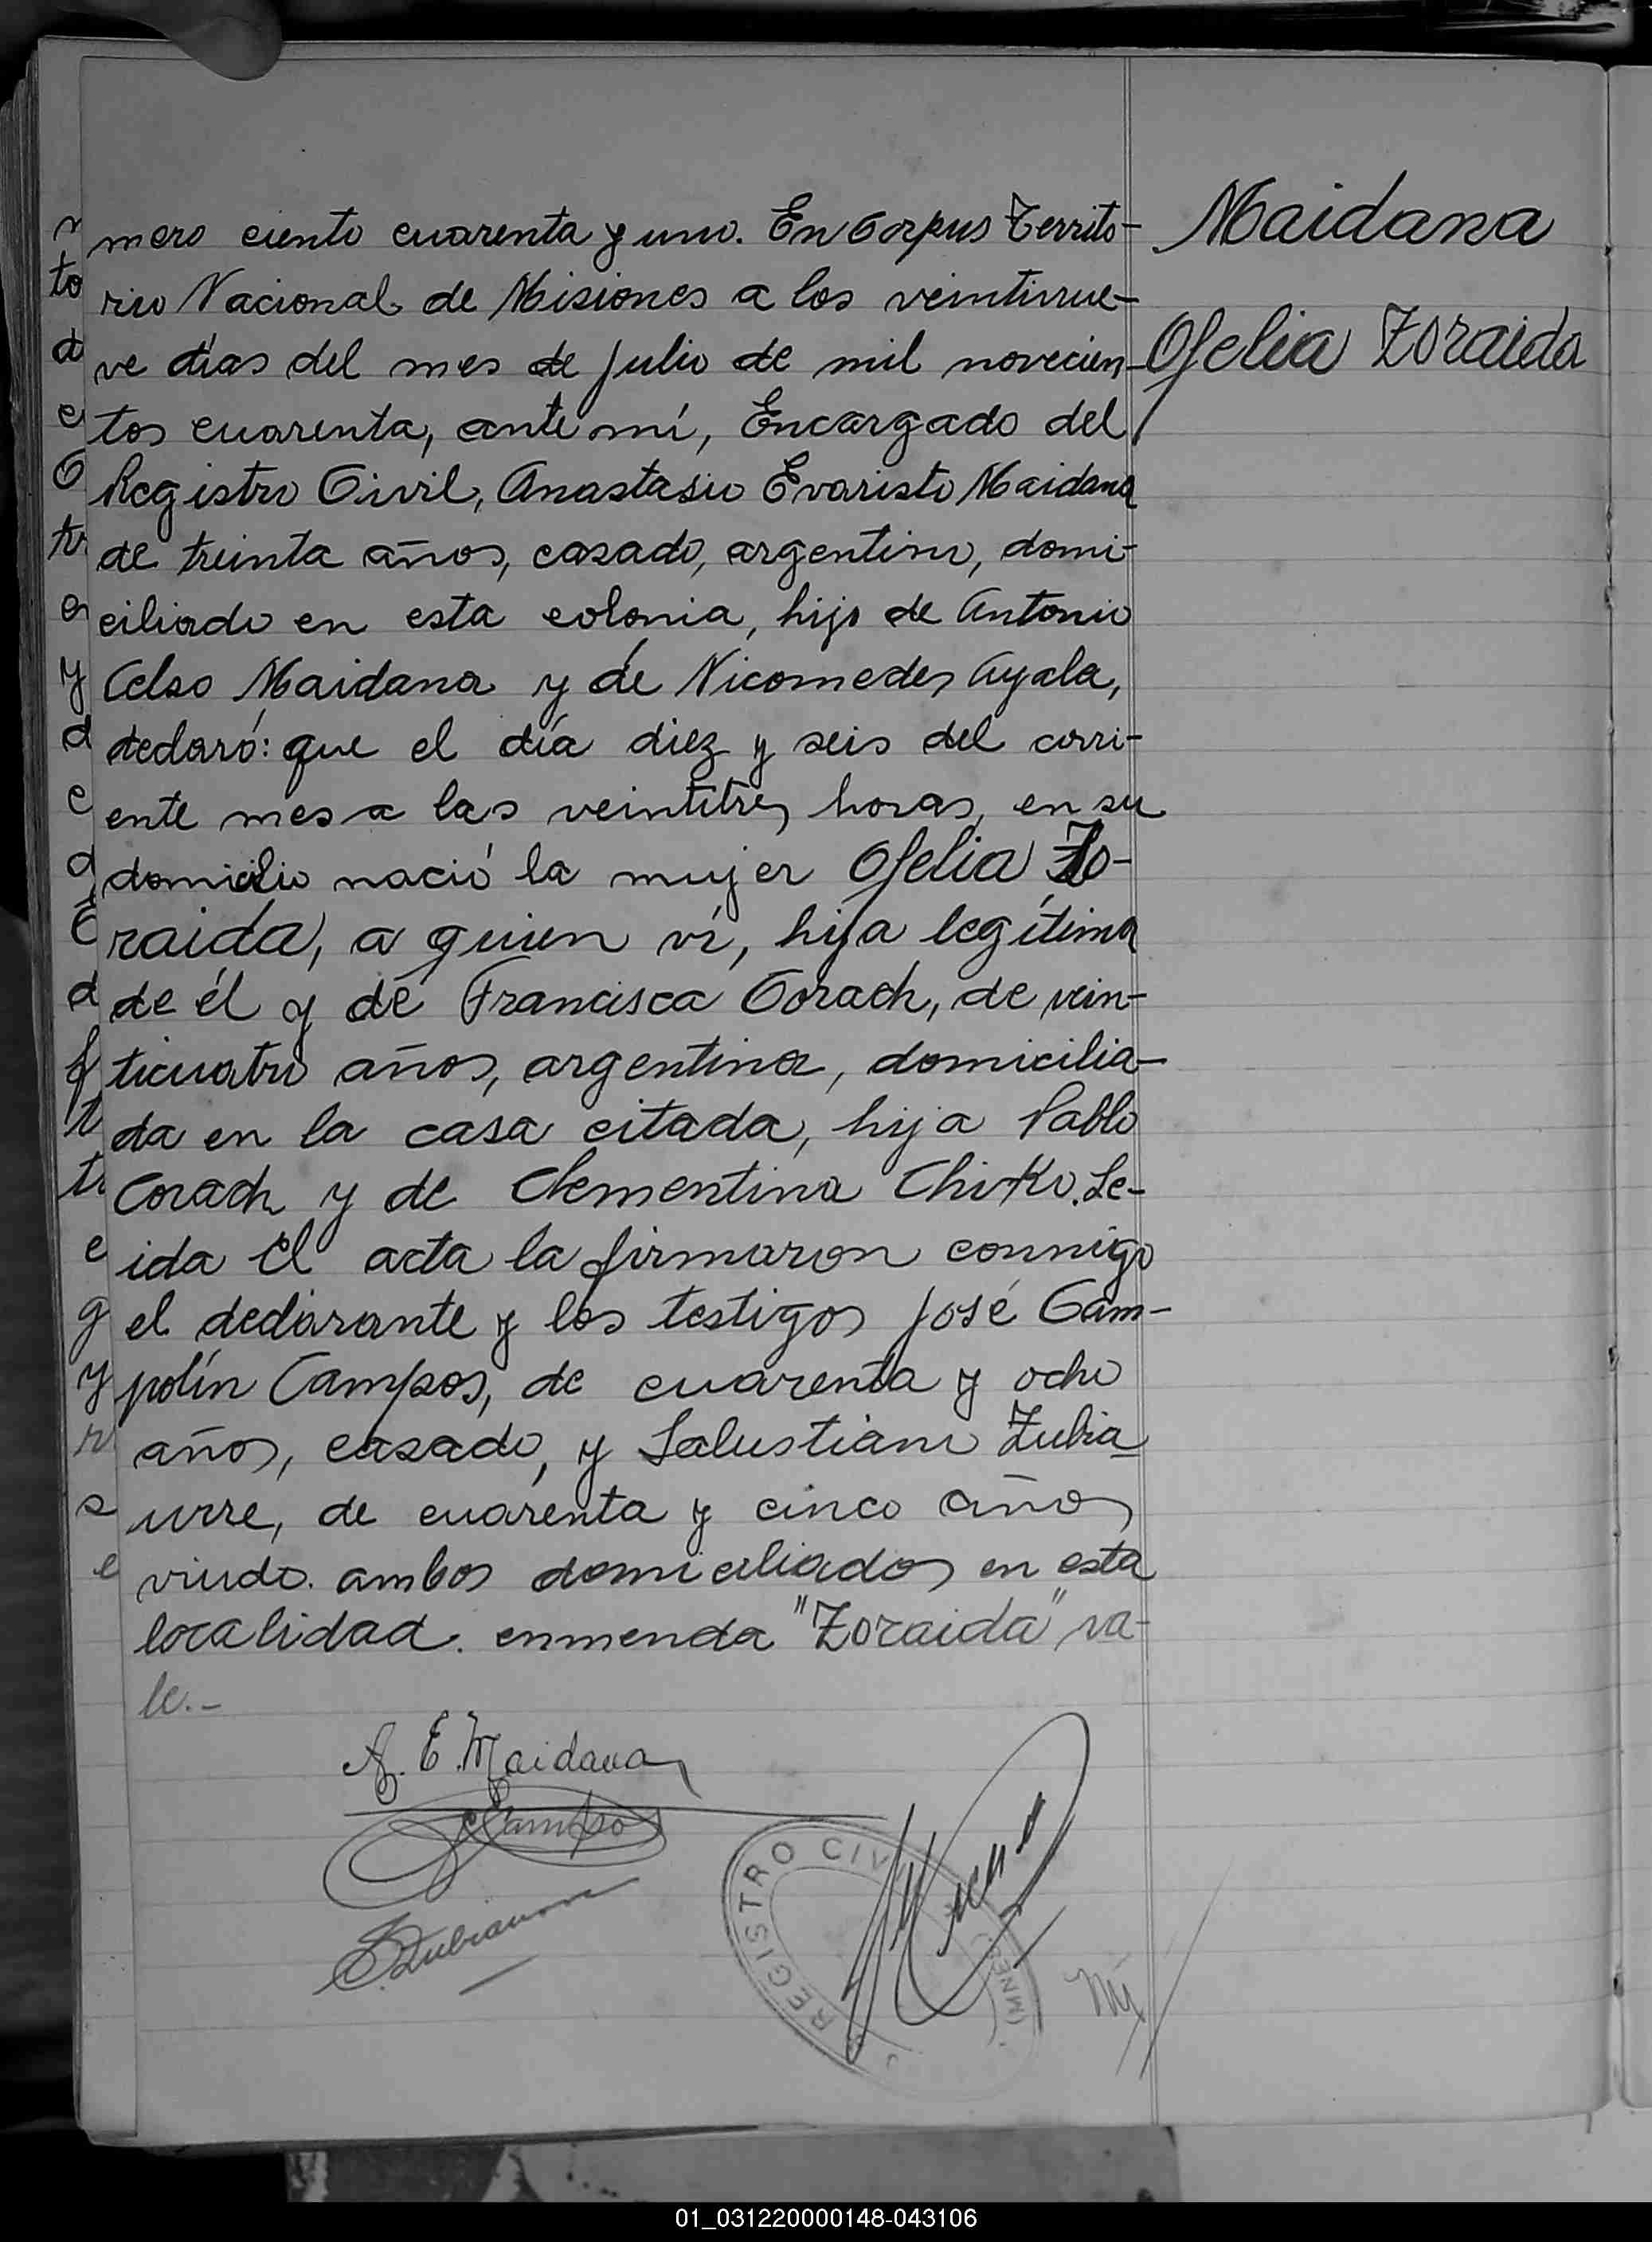 mero ciento cuarenta y uno. En Corpus Territo-
rio Nacional de Misiones a los veintinue-
ve días del mes de Julio de mil novecien-
tos cuarenta, ante mí, Encargado del
Registro Civil, Anastasio Evaristo Maidana
de treinta años, casado, argentino, domi-
ciliado en esta colonia, hijo de Antonio
Celso Maidana y de Nicomedes Ayala,
declaró: que el día diez y seis del corri-
ente mes a las veintitres horas, en su
domicilio nació la mujer Ofelia Zo-
raida, a quien ví, hija legítima
de él y de Francisca Corach, de vein-
ticuatro años, argentina, domicilia-
da en la casa citada, hija Pablo
Corach y de Clementina Chirko. Le-
ida el acta la firmaron conmigo
el declarante y los testigos José Cam-
polín Campos, de cuarenta y ocho
años, casado, y Salustiano Zubia
urre, de cuarenta y cinco años
viudo. ambos domiciliados en esta
localidad. enmenda "Zoraida" va-
le.-
Maidana
Ofelia Zoraida
A. E. Maidana
Campos
REGISTRO CIV
01_031220000148-043106